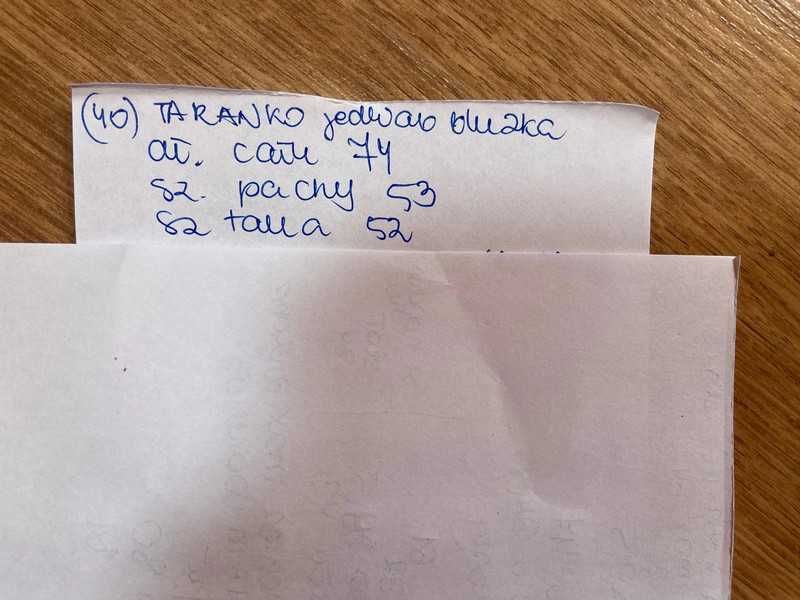 (40) TARANKO jedwab bluzka
dł. całk 74
sz. pachy 53
sz talia 52